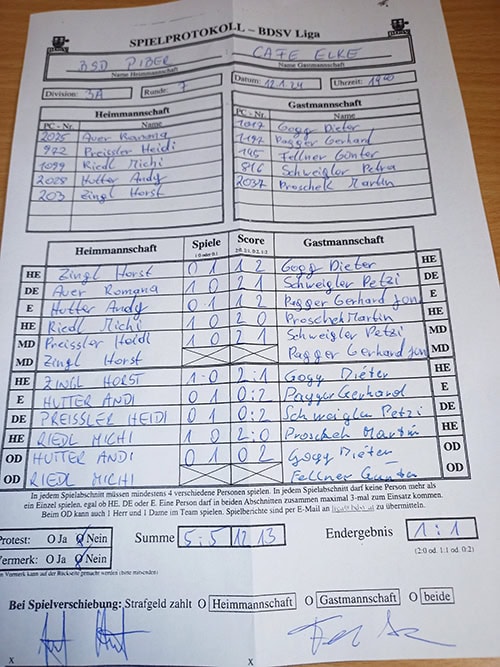 SPIELPROTOKOLL – BDSV Liga
BSD PIBER CAFE ELKE
Name Heimmannschaft Name Gastmannschaft
Division: 3A Runde: 7 Datum: 12.1.24 Uhrzeit: 19
Heimmannschaft Gastmannschaft
PC - Nr. Name PC - Nr. Name
2025 Auer Romana 1017 Gogg Dieter
972 Preissler Heidi 1197 Pagger Gerhard
1099 Riedl Michi 145 Fellner Günter
2028 Hutter Andy 816 Schweigler Petra
203 Zingl Horst 2037 Proschek Martin
Heimmannschaft Spiele Score Gastmannschaft
HE Zingl Horst 0 1 1 2 Gogg Dieter HE
DE Auer Romana 1 0 2 1 Schweigler Petzi DE
E Hutter Andy 0 1 1 2 Pagger Gerhard jun E
HE Riedl Michi 1 0 2 0 Proschek Martin HE
MD Preissler Heidl 1 0 2 1 Schweigler Petzi MD
MD Zingl Horst Pagger Gerhard jun MD
HE ZINGL HORST 1-0 2:1 Gogg Dieter HE
E HUTTER ANDI 0 1 0:2 Pagger Gerhard E
DE PREISSLER HEIDI 0 1 0:2 Schweigler Petzi DE
HE RIEDL MICHI 1 0 2:0 Proschek Martin HE
OD HUTTER ANDI 0 1 0 2 Gogg Dieter OD
OD RIEDL MICHI Fellner Günter OD
In jedem Spielabschnitt müssen mindestens 4 verschiedene Personen spielen. In jedem Spielabschnitt darf keine Person mehr als
ein Einzel spielen, egal ob HE, DE oder E. Eine Person darf in beiden Abschnitten zusammen maximal 3-mal zum Einsatz kommen.
Beim OD kann auch 1 Herr und 1 Dame im Team spielen. Spielberichte sind per E-Mail an zu übermitteln.
Protest: O Ja O Nein Summe 5:5 12 13 Endergebnis 1:1
Vermerk: O Ja O Nein (2:0 od. 1:1 od. 0:2)
Bei Spielverschiebung: Strafgeld zahlt O Heimmannschaft O Gastmannschaft O beide
X X